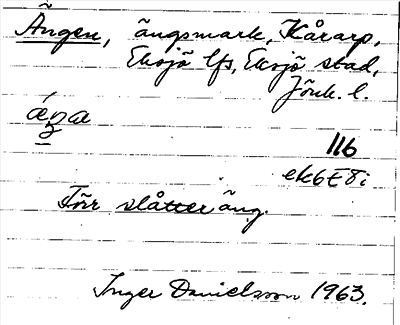 Ängen, ängsmark, Kårarp,
Eksjö lfs, Eksjö stad,
Jönk. l.
116
ek6E8i
Förr slåtteräng.
Inger Danielsson 1963.